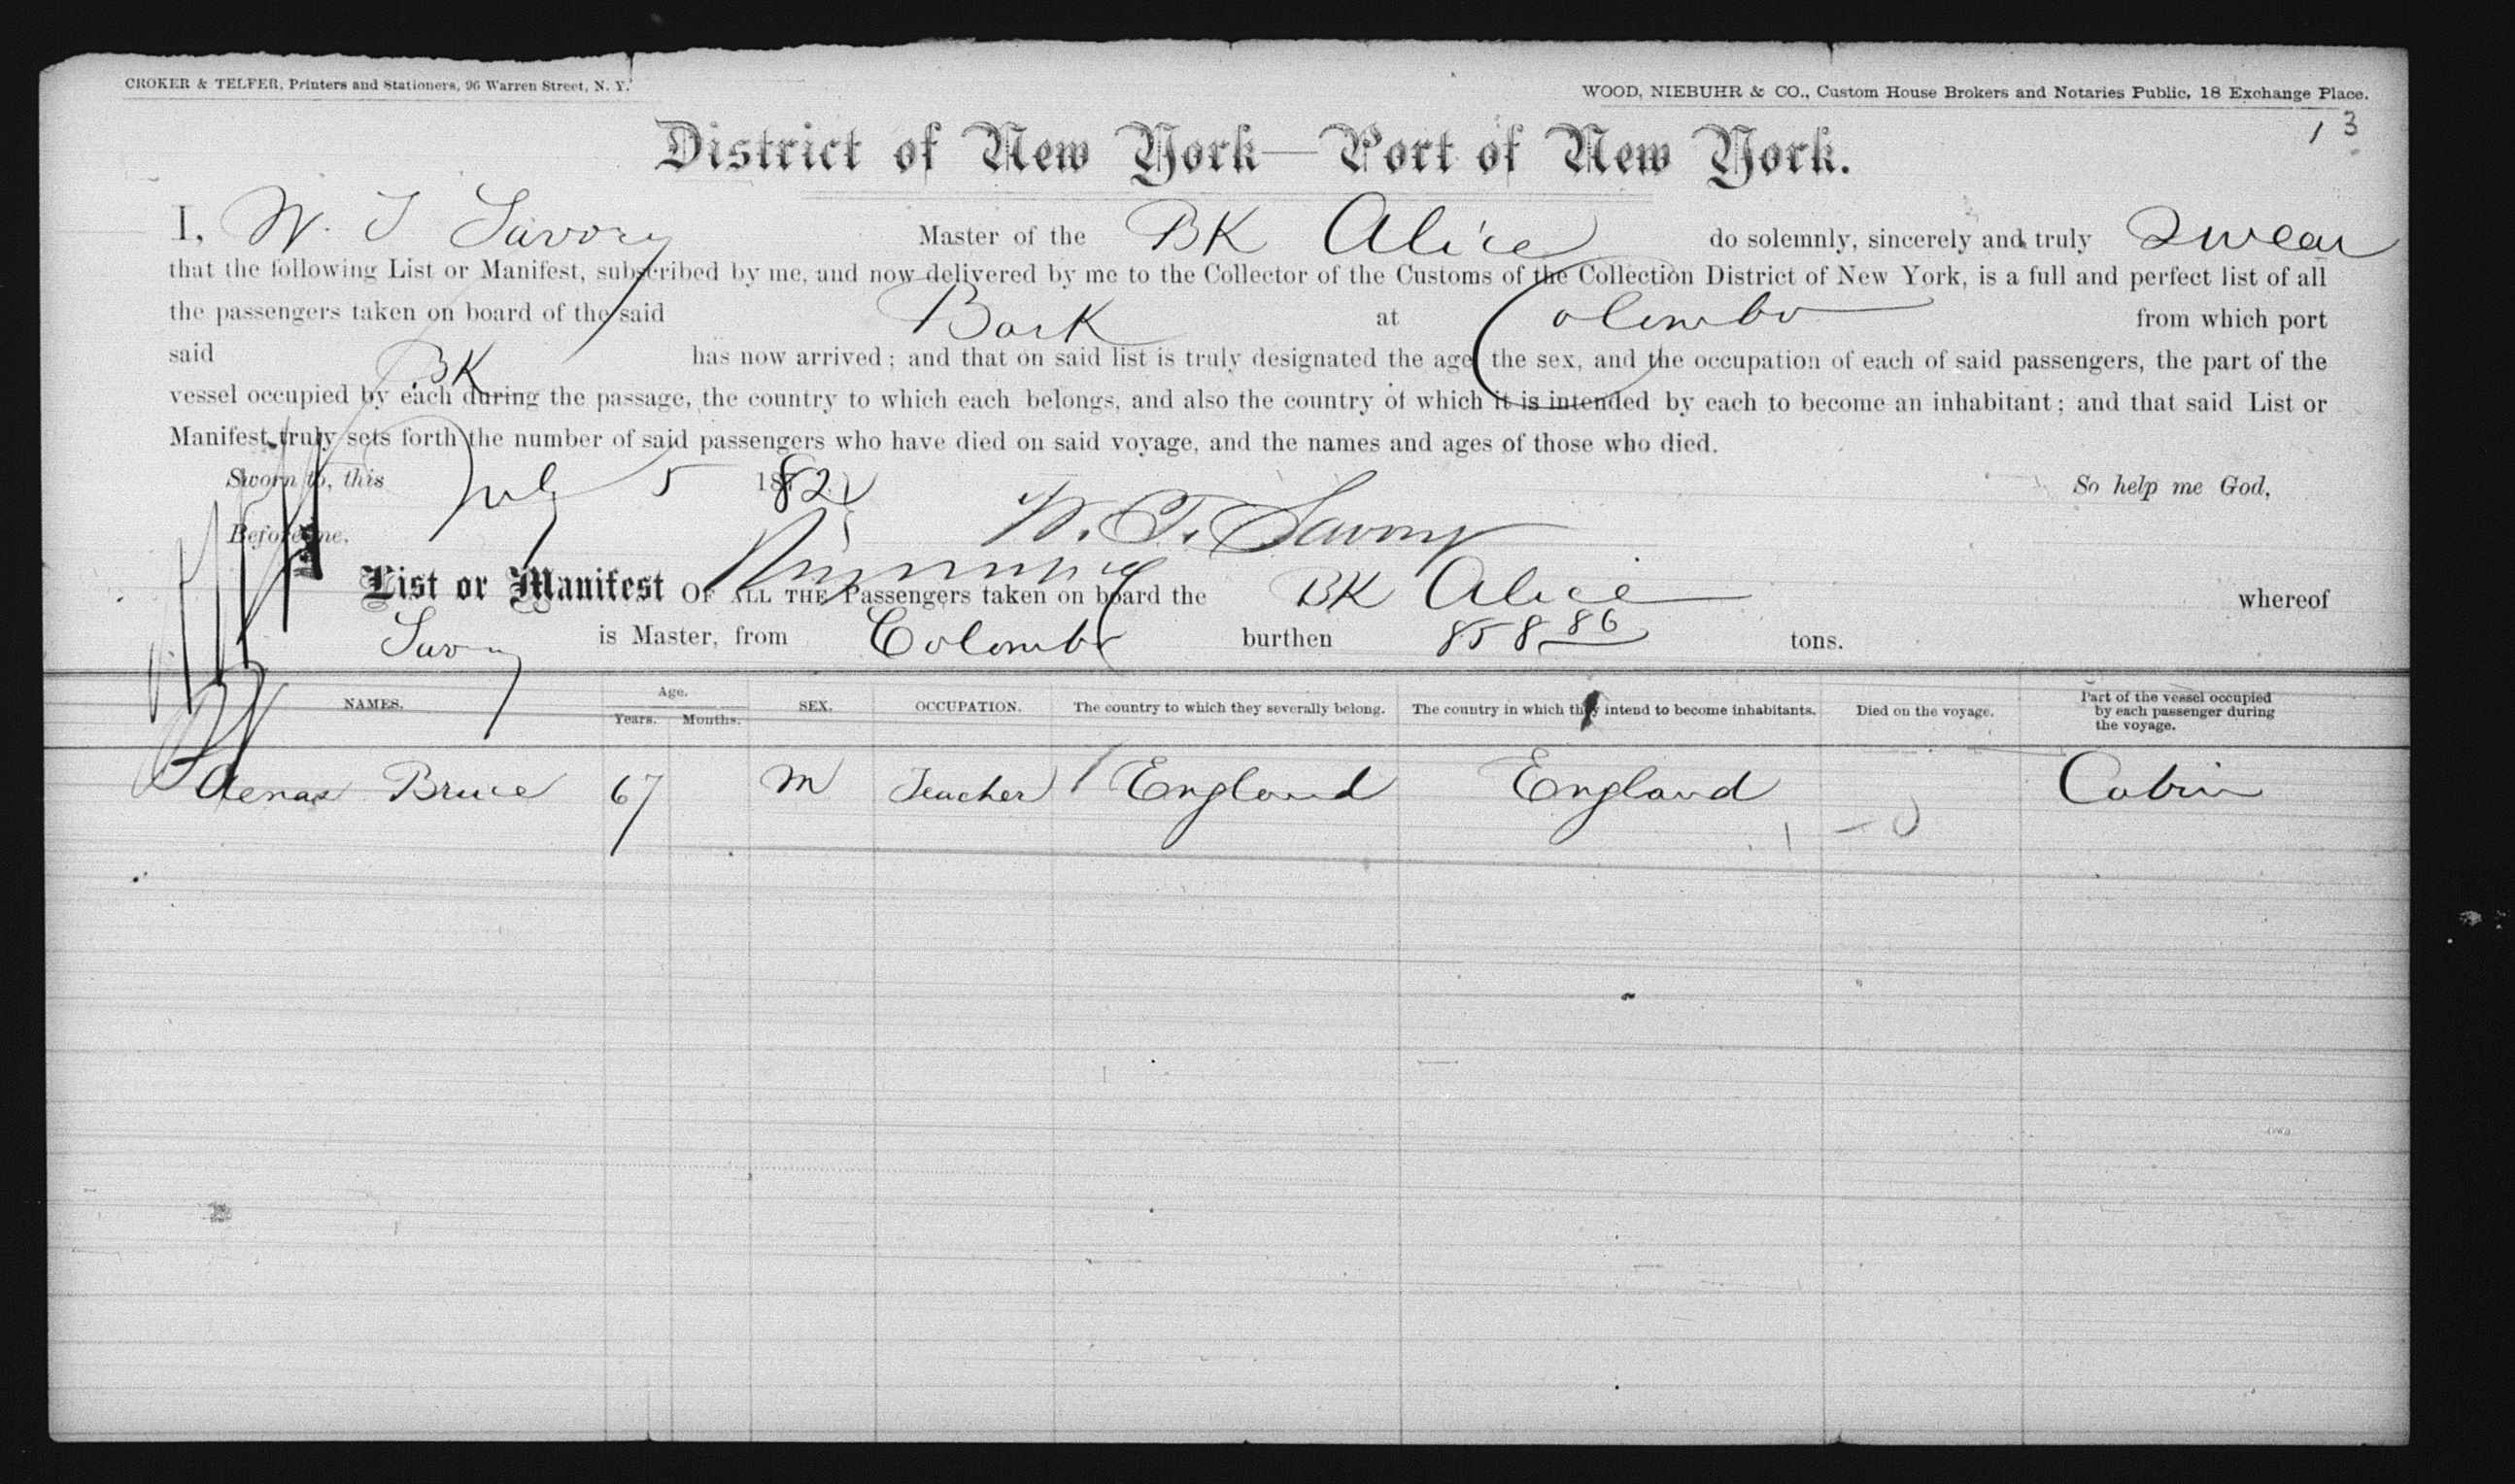 CROKER & TELFER, Printers and Stationers, 96 Warren Street, N. Y.
WOOD, NIEBUHR & CO., Custom House Brokers and Notaries Public, 18 Exchange Place.
13
District of New York—Port of New York.
I, W. T Savory Master of the BK Alice do solemnly, sincerely and truly Swear
that the following List or Manifest, subscribed by me, and now delivered by me to the Collector of the Customs of the Collection District of New York, is a full and perfect list of all
the passengers taken on board of the said Bark at Colombo from which port
said BK has now arrived; and that on said list is truly designated the age, the sex, and the occupation of each of said passengers, the part of the
vessel occupied by each during the passage, the country to which each belongs, and also the country of which it is intended by each to become an inhabitant; and that said List or
Manifest truly sets forth the number of said passengers who have died on said voyage, and the names and ages of those who died.
Sworn to, this July 5 1882 So help me God,
Before me, W. T. Savory
List or Manifest OF ALL THE Passengers taken on board the BK Alice whereof
Savory is Master, from Colombo burthen 858 86 tons.
NAMES. Age. Years. Months. SEX. OCCUPATION. The country to which they severally belong. The country in which they intend to become inhabitants. Died on the voyage. Part of the vessel occupied by each passenger during the voyage.
Aenas Bruce 67 M Teacher England England Cabin